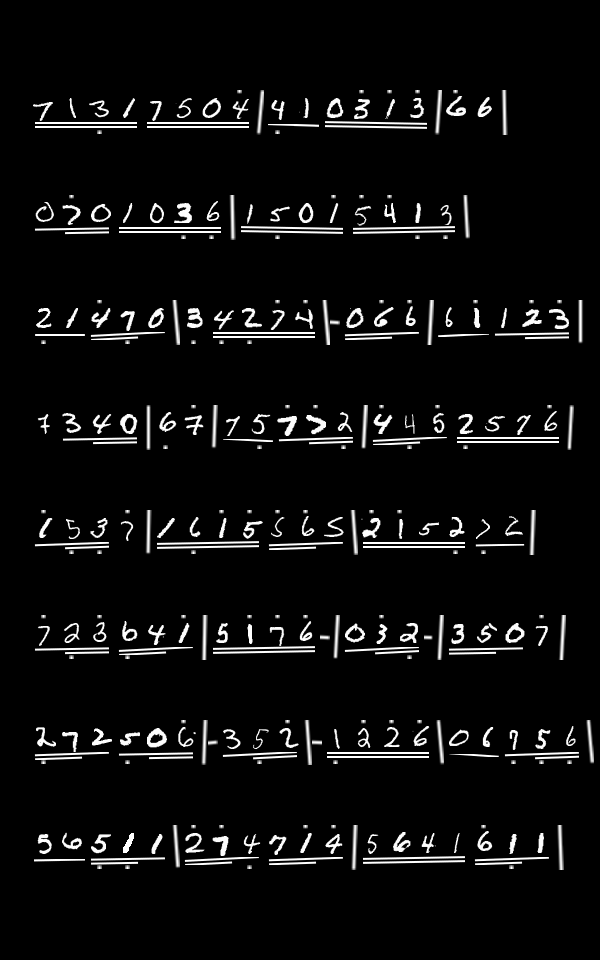 7 1 3 1 7 5 0 4 | 4 1 0 3 1 3 | 6 6 |
0 7 0 1 0 3 6 | 1 5 0 1 5 4 1 3 |
2 1 4 7 0 | 3 4 2 7 4 | - 0 6 6 | 6 1 1 2 3 |
7 3 4 0 | 6 7 | 7 5 7 7 2 | 4 4 5 2 5 7 6 |
1 5 3 7 | 1 6 1 5 5 6 5 | 2 1 5 2 7 2 |
7 2 3 6 4 1 | 5 1 7 6 - | 0 3 2 - | 3 5 0 7 |
2 7 2 5 0 6 | - 3 5 2 | - 1 2 2 6 | 0 6 7 5 6 |
5 6 5 1 1 | 2 7 4 7 1 4 | 5 6 4 1 6 1 1 |